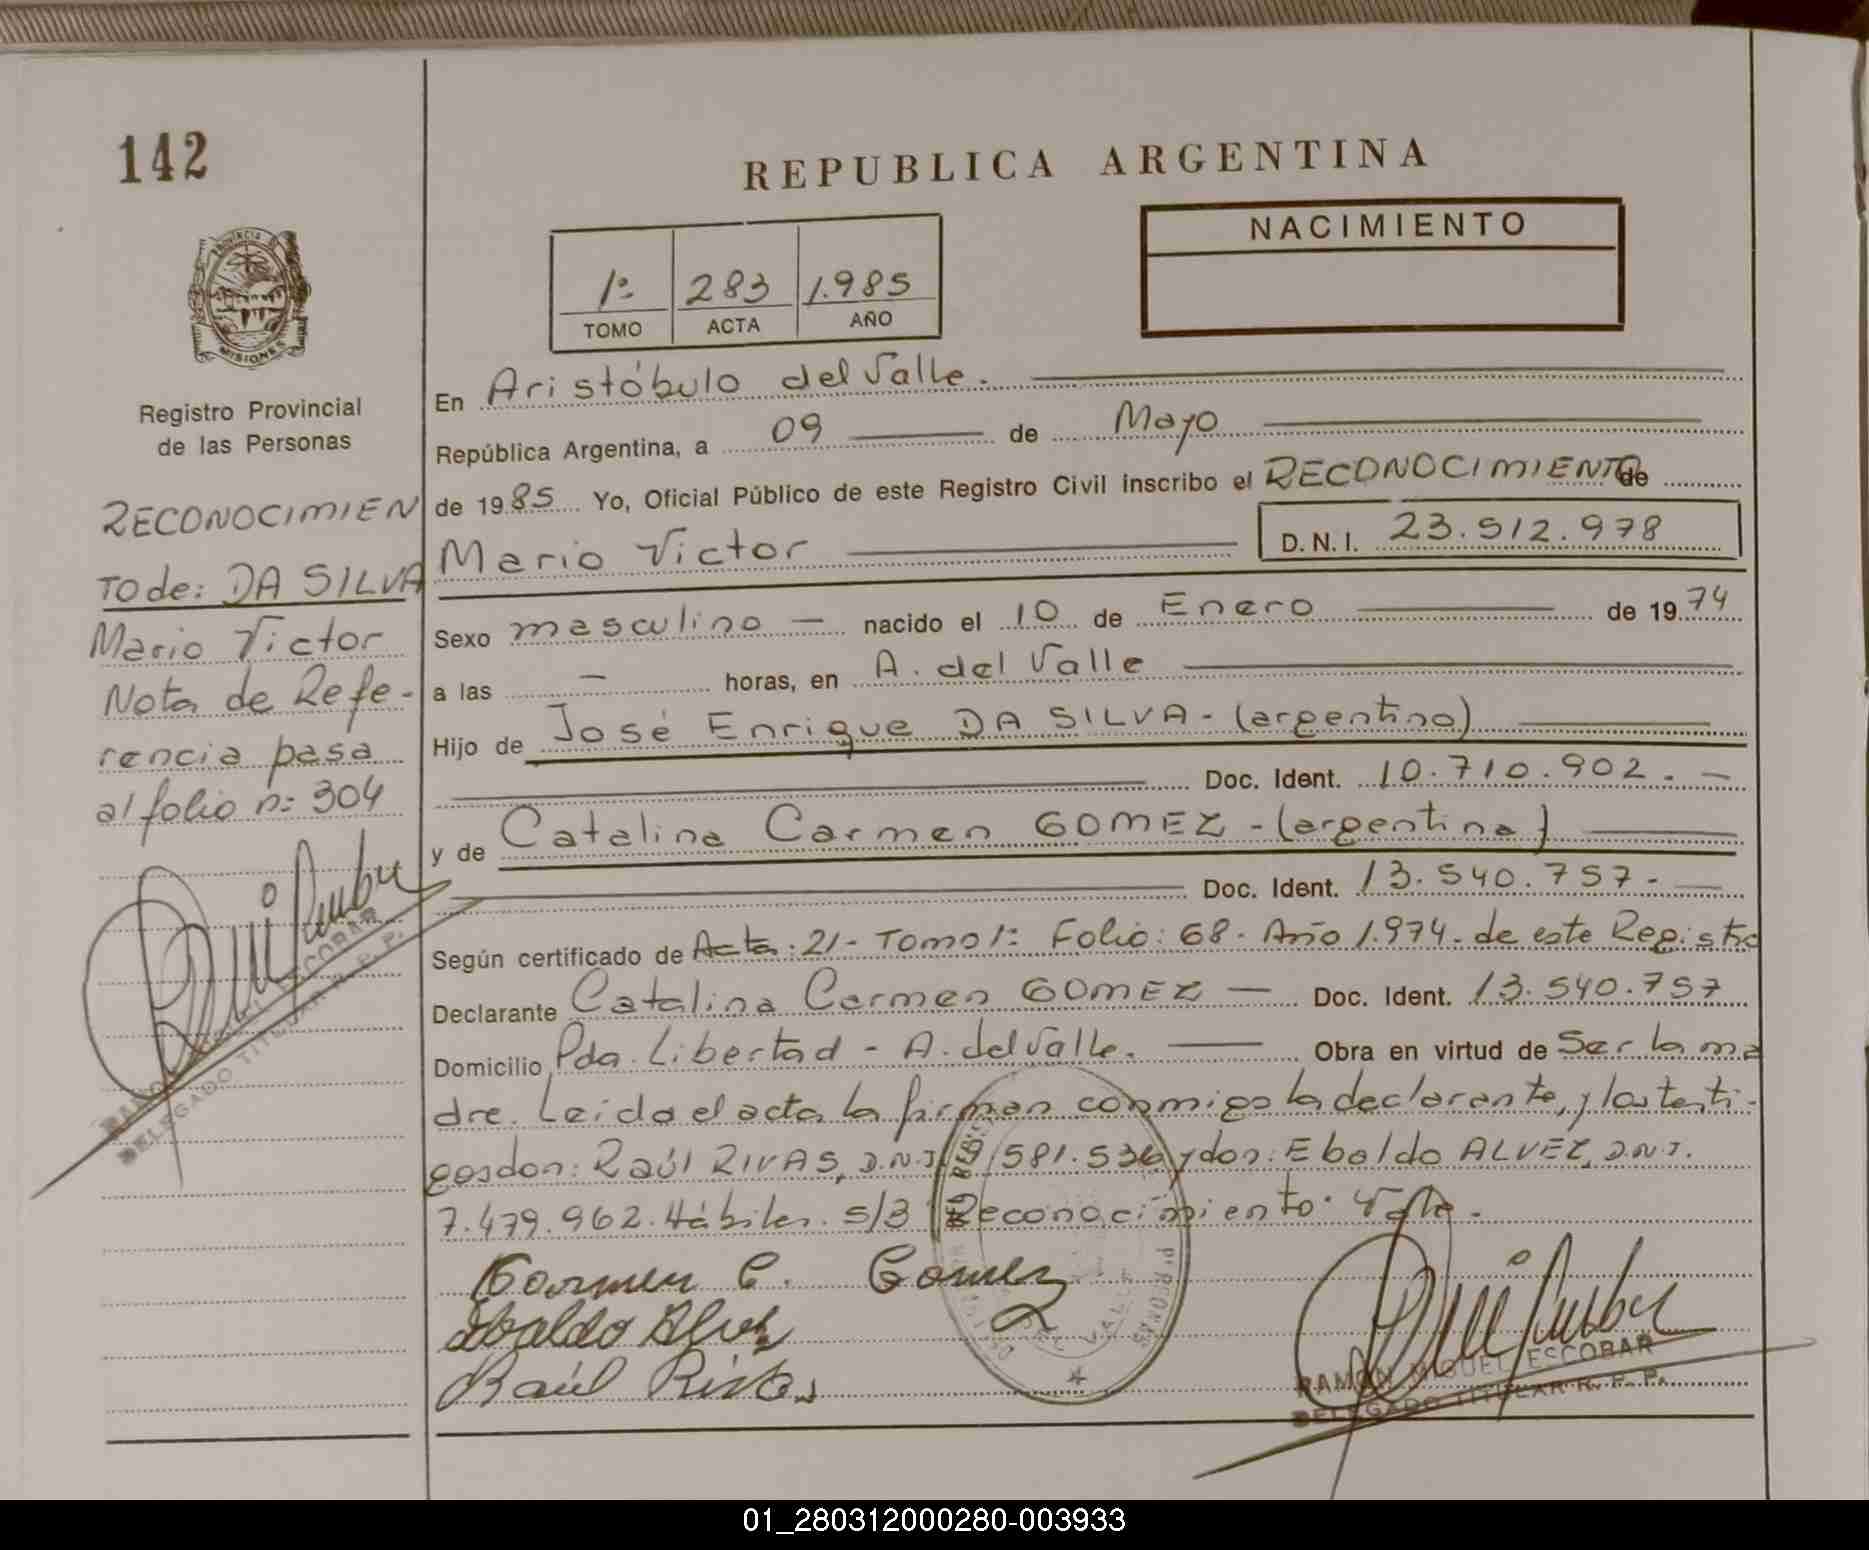 142
REPUBLICA ARGENTINA
NACIMIENTO
1º 283 1.985
TOMO ACTA AÑO
PROVINCIA DE
MISIONES
Registro Provincial
de las Personas
RECONOCIMIEN
TO de: DA SILVA
Mario Victor
Nota de Refe-
rencia pasa
al folio nº 304
ESCOBAR
DELEGADO TITULAR R. P. P.
En Aristóbulo del Valle.
República Argentina, a 09 de Mayo
de 1985 Yo, Oficial Público de este Registro Civil inscribo el RECONOCIMIENTO de
Mario Victor D. N. I. 23.512.978
Sexo masculino - nacido el 10 de Enero de 1974
a las - horas, en A. del Valle
Hijo de José Enrique DA SILVA - (argentino)
Doc. Ident. 10.710.902. -
y de Catalina Carmen GOMEZ - (argentina)
Doc. Ident. 13.540.757. -
Según certificado de Acta: 21 - Tomo 1º Folio: 68 - Año 1.974. de este Registro
Declarante Catalina Carmen GOMEZ - Doc. Ident. 13.540.757
Domicilio Pda. Libertad - A. del Valle. - Obra en virtud de Ser la ma
dre. Leida el acta la firman conmigo la declarante, y los testi-
gos don: Raúl RIVAS, D.N.I. 581.536 y don: Ebaldo ALVEZ, D.N.I.
7.479.962. Hábiles. s/B Reconocimiento. Vale.
Carmen C. Gomez
Ebaldo Alvez
Raúl Rivas
RAMON MIGUEL ESCOBAR
DELEGADO TITULAR R. P. P.
01_280312000280-003933